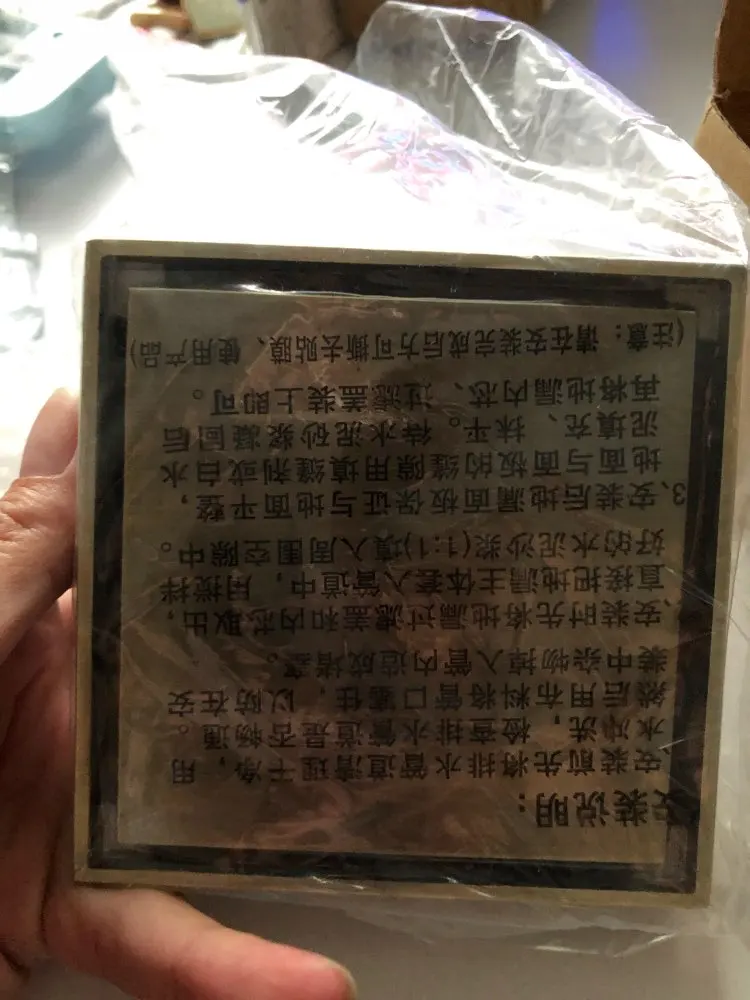 安装说明：
安装前先将排水管道清理干净，用
水冲洗，检查排水管道是否物通。
然后用布料将管口塞住，以防在安
装中杂物掉入管内造成堵塞。
、安装时先将地漏过滤盖和内芯取出，
直接把地漏主体套入管道中，用搅拌
好的水泥沙浆(1:1)填入周围空隙中。
3、安装后地漏面板保证与地面平整，
地面与面板的缝隙用填缝剂或白水
泥填充、抹平。待水泥砂浆凝固后
再将地漏内芯、过滤盖装上即可。
(注意：请在安装完成后方可撕去贴膜、使用产品)